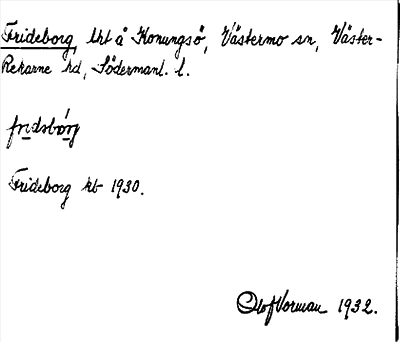 Frideborg, lht å Konungsö, Västermo sn, Väster-
Rekarne hd, Södermanl. l.
fridsbórg
Frideborg kb 1930.
Olof Vorman 1932.